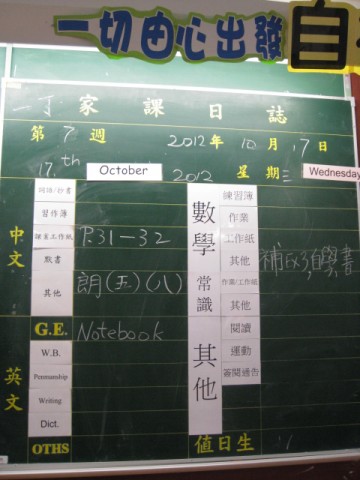 一切由心出發 自
一丁 家課日誌
第 7 週 2012年 10月 17日
17.th October 2012 星期三 Wednesday
中文
詞語/抄書
習作簿
課室工作紙 P.31-32
默書
其他 朗(五)(八)
G.E. Notebook
英文
W.B.
Penmanship
Writing
Dict.
OTHS
數學
練習簿
作業
工作紙
其他
常識
作業/工作紙
其他
其他
閱讀
運動
簽閱通告
值日生